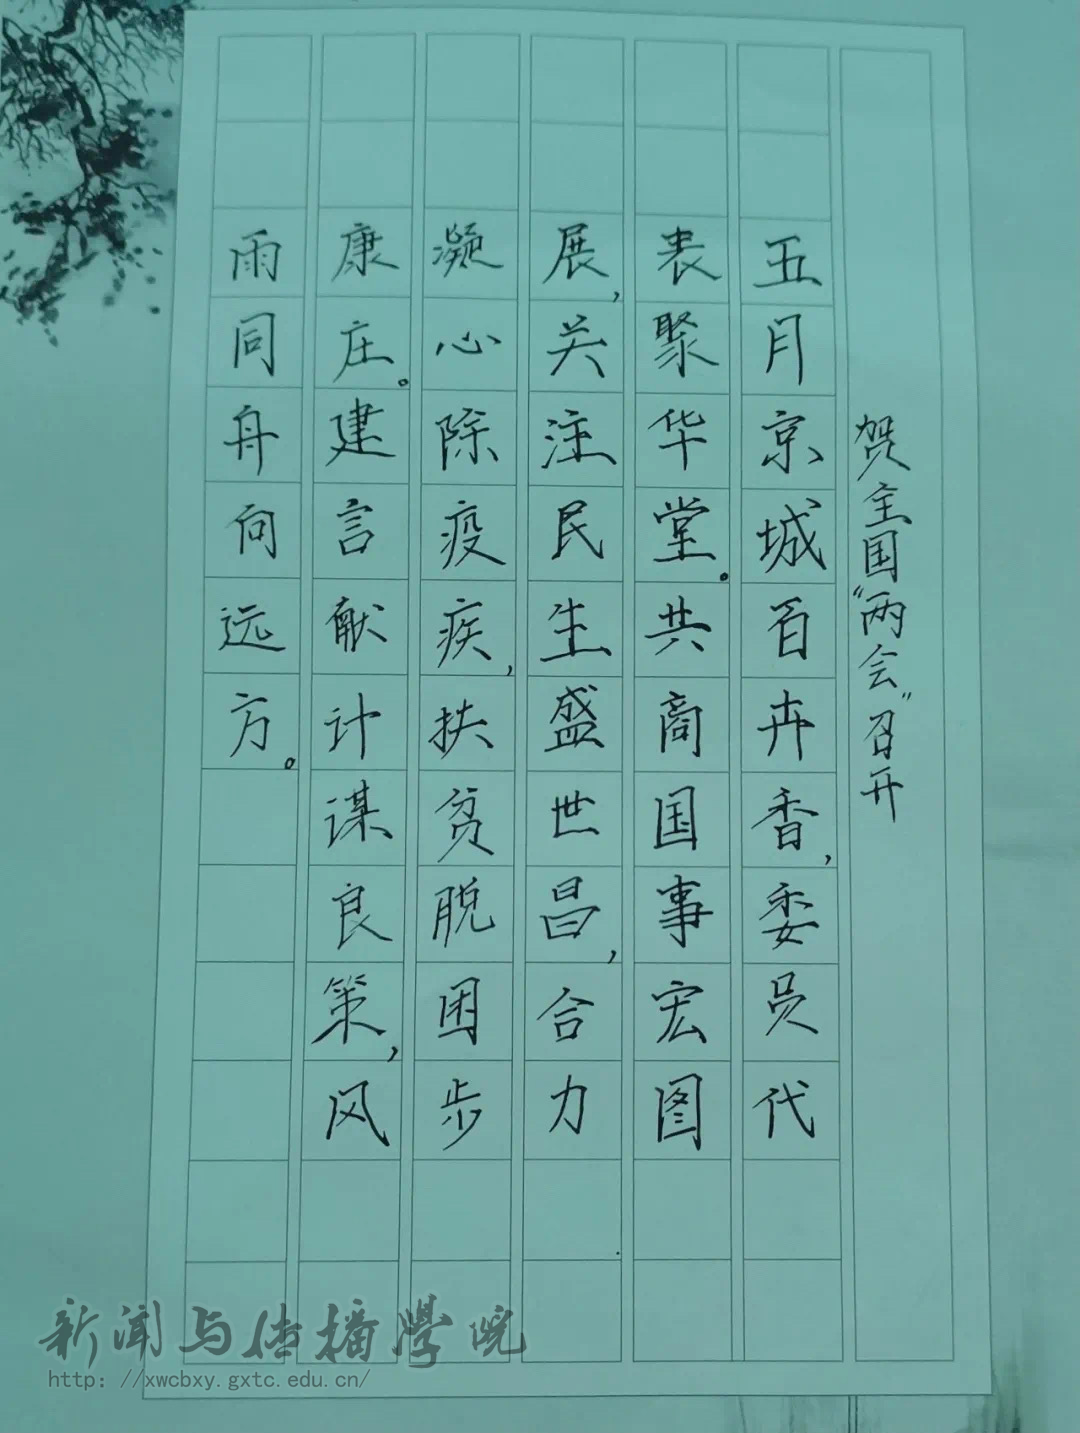 贺全国“两会”召开
五月京城百卉香，委员代
表聚华堂。共商国事宏图
展，关注民生盛世昌，合力
凝心除疫疾，扶贫脱困步
康庄。建言献计谋良策，风
雨同舟向远方。
新闻与传播学院
http://xwcbxy.gxtc.edu.cn/